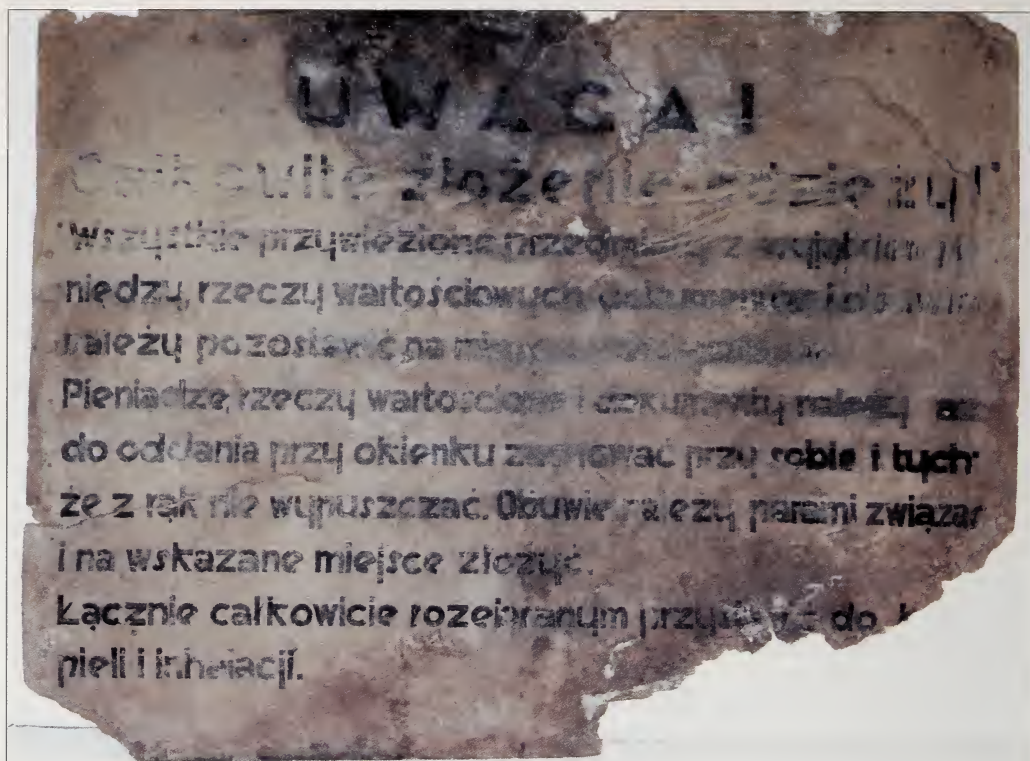 UWAGA!
Całkowite złożenie odzieży!
Wszystkie przywiezione przedmioty z wyjątkiem
niedzy, rzeczy wartościowych, dokumentów i
należy pozostawić na
Pieniądze, rzeczy wartościowe i dokumenty należy aż
do oddania przy okienku zachować przy sobie i tych-
że z rąk nie wypuszczać. Obuwie należy parami związać
i na wskazane miejsce złożyć.
Łącznie całkowicie rozebranym przystąpić do
pieli i inhalacji.